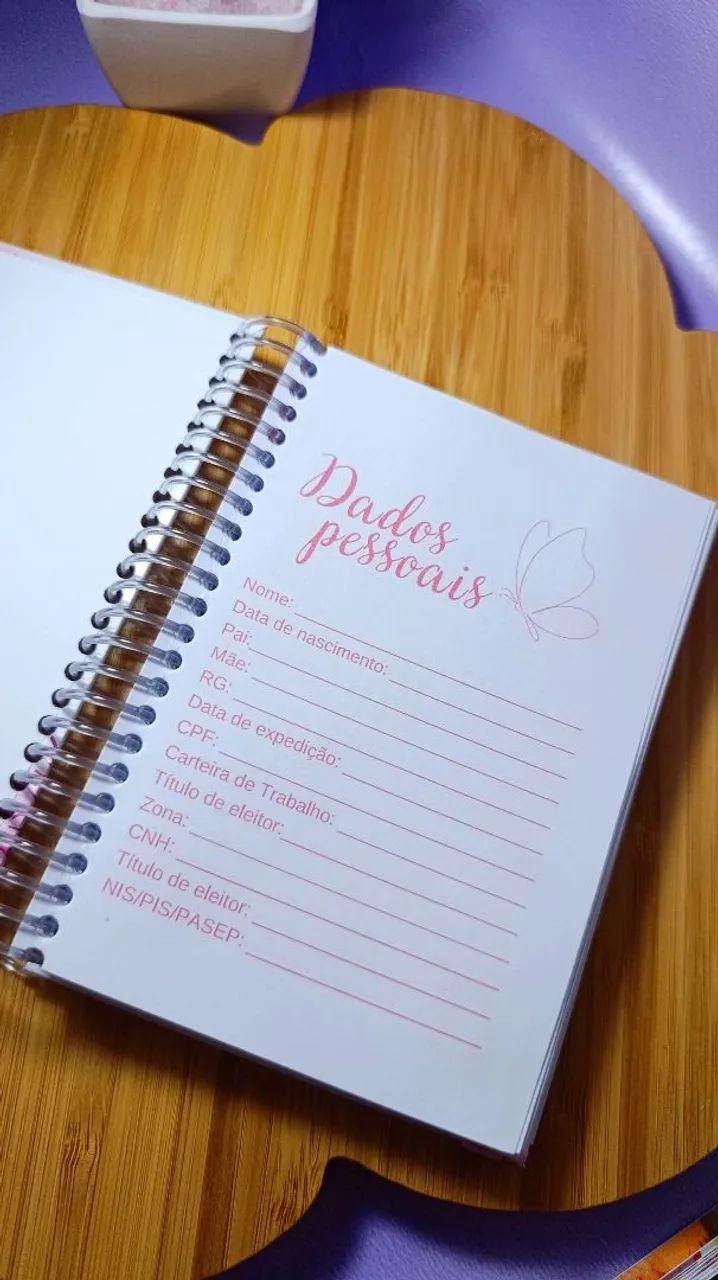 Dados
pessoais
Nome:
Data de nascimento:
Pai:
Mãe:
RG:
Data de expedição:
CPF:
Carteira de Trabalho:
Título de eleitor:
Zona:
CNH:
Título de eleitor:
NIS/PIS/PASEP: